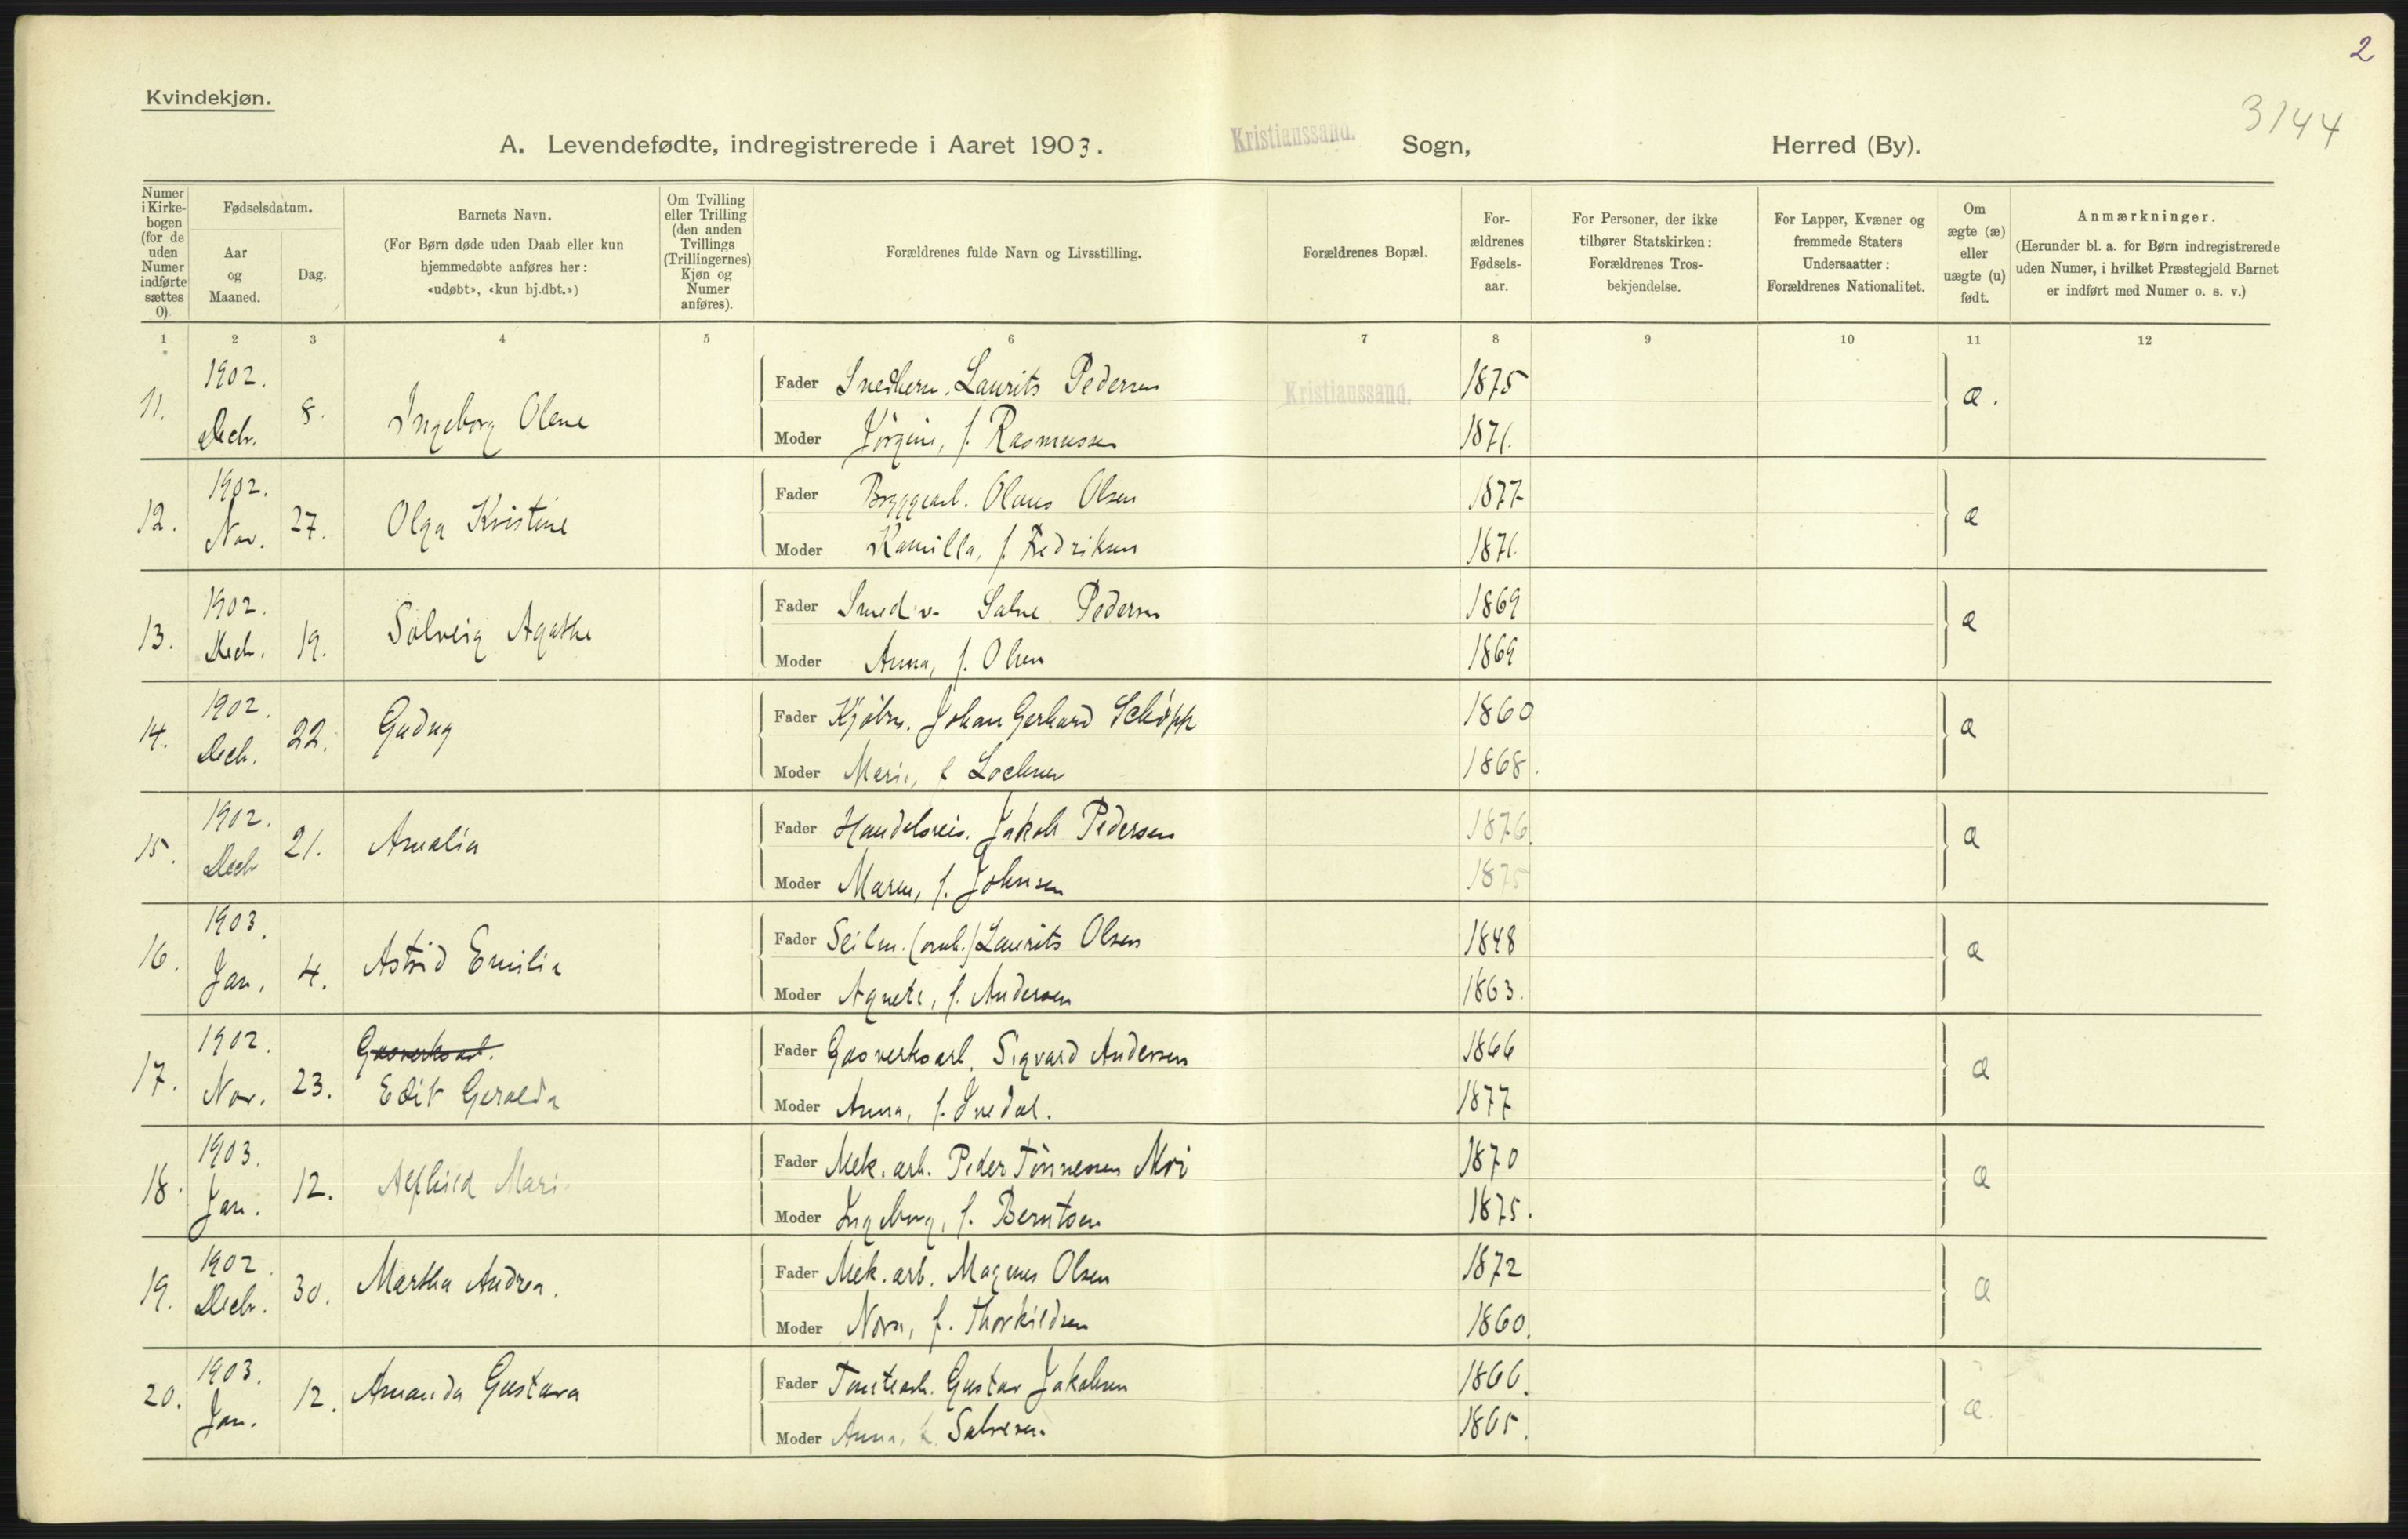 2
3144
Kvindekjøn.
A. Levendefødte, indregistrerede i Aaret 1903. Kristianssand. Sogn, Herred (By).
Numer i Kirkebogen (for de uden Numer indførte sættes 0)
Fødselsdatum.
Aar og Maaned.
Dag.
Barnets Navn.
(For Børn døde uden Daab eller kun hjemmedøbte anføres her: «udøbt», «kun hj.dbt.»)
Om Tvilling eller Trilling (den anden Tvillings (Trillingernes) Kjøn og Numer anføres).
Forældrenes fulde Navn og Livsstilling.
Forældrenes Bopæl.
Forældrenes Fødselsaar.
For Personer, der ikke tilhører Statskirken: Forældrenes Trosbekjendelse.
For Lapper, Kvæner og fremmede Staters Undersaatter: Forældrenes Nationalitet.
Om ægte (æ) eller uægte (u) født.
Anmærkninger.
(Herunder bl. a. for Børn indregistrerede uden Numer, i hvilket Præstegjeld Barnet er indført med Numer o. s. v.)
1 2 3 4 5 6 7 8 9 10 11 12
11. 1902. Decb. 8. Ingeborg Olene
Fader Snedkerm. Laurits Pedersen Kristianssand. 1875 æ.
Moder Jörgine, f. Rasmussen 1871.
12. 1902. Nov. 27. Olga Kristine
Fader Bryggearb. Olaus Olsen 1877 æ
Moder Kamilla, f. Fredriksen 1871.
13. 1902. Decb. 19. Solveig Agathe
Fader Smed Salve Pedersen 1869 æ
Moder Anna, f. Olsen 1869
14. 1902. Decb. 22. Gudny
Fader Kjøbm. Johan Gerhard Schöpp 1860 æ
Moder Marie, f. Lochner 1868.
15. 1902. Decb 21. Amalia
Fader Handelsreis. Jakob Pedersen 1876. æ
Moder Maren, f. Johnsen 1875
16. 1903. Jan. 4. Astrid Emilie
Fader Seilm. (omb.) Laurits Olsen 1848 æ
Moder Agnete, f. Andersen 1863.
17. 1902. Nov. 23. Gasverksarb. Edit Geralda
Fader Gasverksarb. Sigvard Andersen 1866 æ
Moder Anna, f. Svedal. 1877
18. 1903. Jan. 12. Alfhild Mari
Fader Mek. arb. Peder Tönnesen Moi 1870 æ
Moder Ingeborg, f. Berntsen 1875.
19. 1902. Decb. 30. Martha Andrea.
Fader Mek. arb. Magnus Olsen 1872 æ
Moder Nora, f. Thorkildsen 1860.
20. 1903. Jan. 12. Amanda Gustava
Fader Gustav Jakobsen 1866. æ.
Moder Anna, f. Salvesen. 1865.